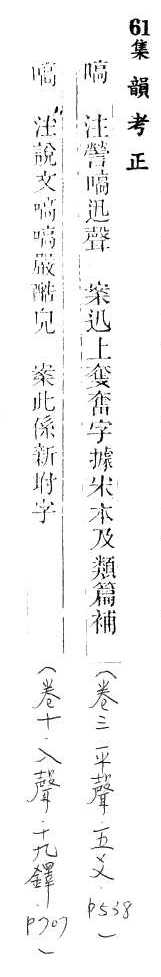 61集韻考正
嗃 注謍嗃迅聲 案迅上奪奮字據宋本及類篇補(卷三·平聲·五爻·p538)
嗃 注說文嗃嗃嚴酷皃 案此係新坿字(卷十·入聲·十九鐸·p707)